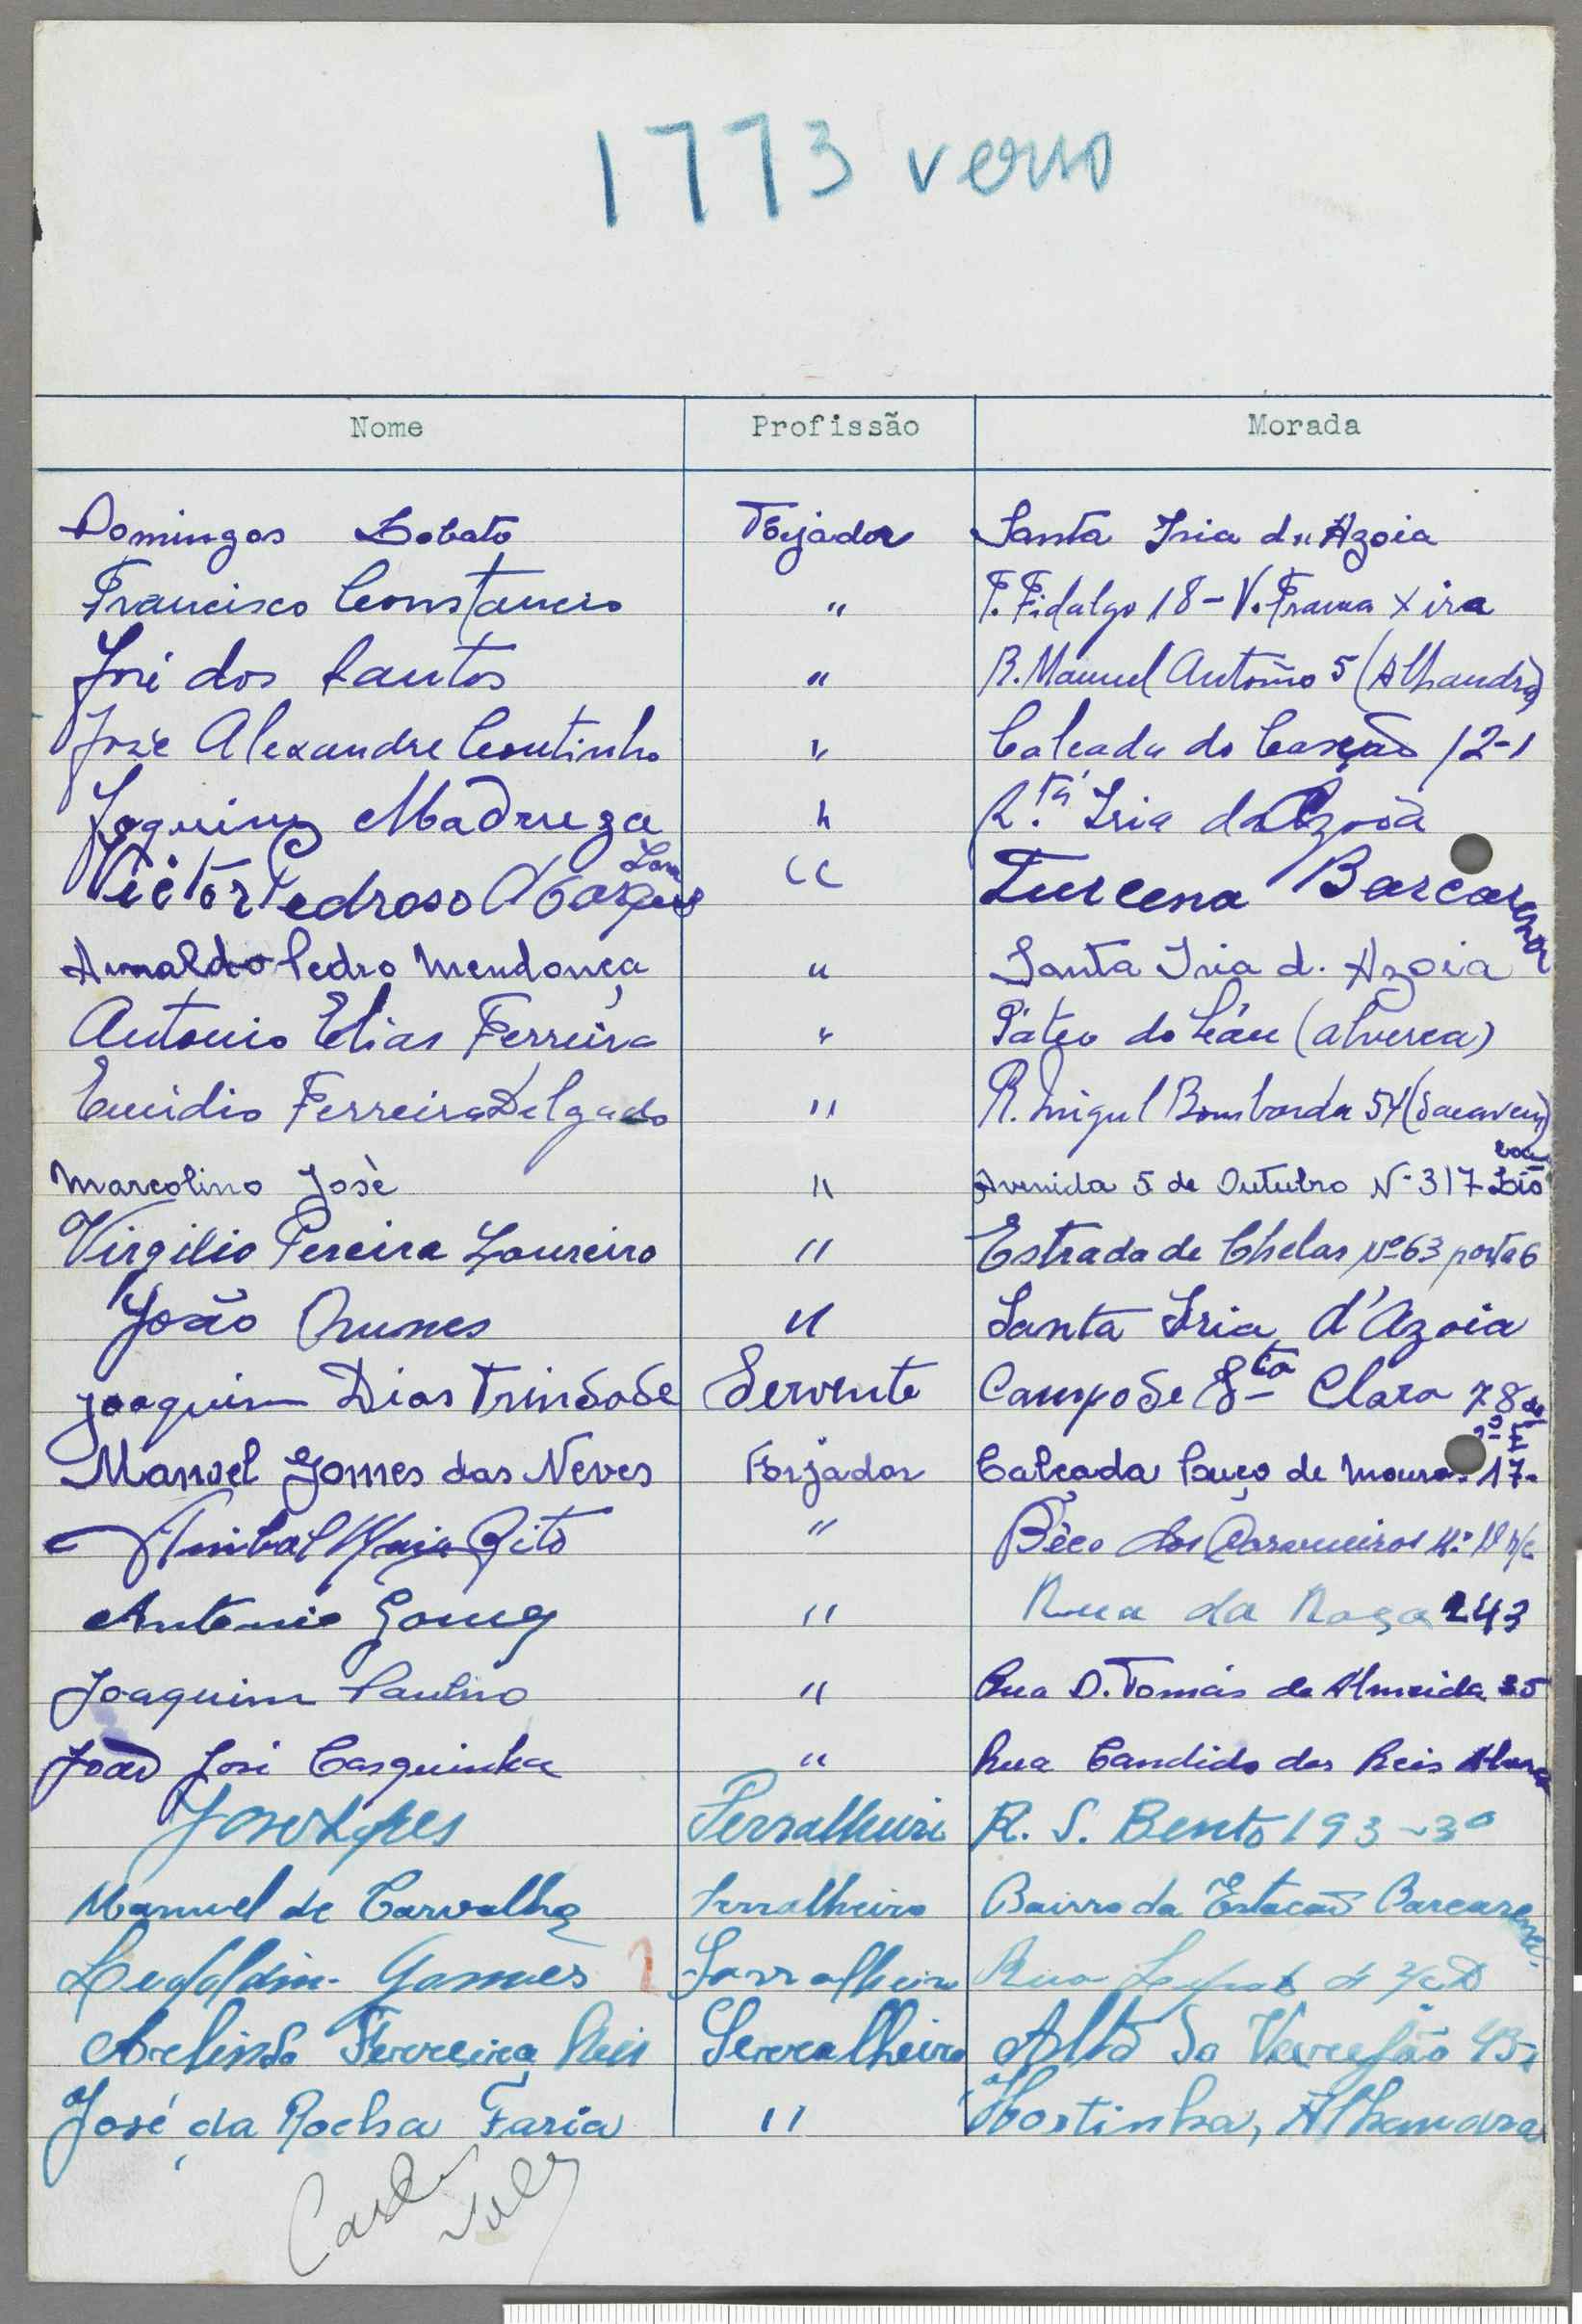 1773 verso
Nome Profissão Morada
Domingos Lobato Fojador Santa Iria da Azoia
Francisco Constancio " T. Fidalgo 18 - V. Franca Xira
José dos Santos " R. Manuel António 5 (Alhandra)
José Alexandre Coutinho " Calçada do Cascão 12-1
Joaquim Madruga " S.ta Iria da Azoia
Victor Pedroso Borges " Turcena Barcarena
Arnaldo Pedro Mendonça " Santa Iria d. Azoia
Antonio Elias Ferreira " Páteo do Leão (Alverca)
Emidio Ferreira Delgado " R. Miguel Bombarda 54 (Sacavem)
Marcolino José " Avenida 5 de Outubro Nº 317 Lisboa
Virgilio Pereira Loureiro " Estrada de Chelas nº 63 porta 6
João Nunes " Santa Iria d'Azoia
Joaquim Dias Trindade Servente Campo de Sta Clara 78
Manoel Gomes das Neves Forjador Calçada Poço de Mouros 17
Anibal Brito " Bêco dos
Antonio Gomes " Rua da Rosa 243
Joaquim Paulino " Rua D. Tomás de Almeida 25
João José Casquinha " Rua Candido dos Reis
José Lopes Serralheiro R. S. Bento 193-3º
Manuel de Carvalho Serralheiro Bairro da Estacão Barcarena
Gomes Serralheiro Rua
Arelindo Ferreira Reis Serralheiro Alto do Varejão 43
José da Rocha Faria " Hortinha, Alhandra